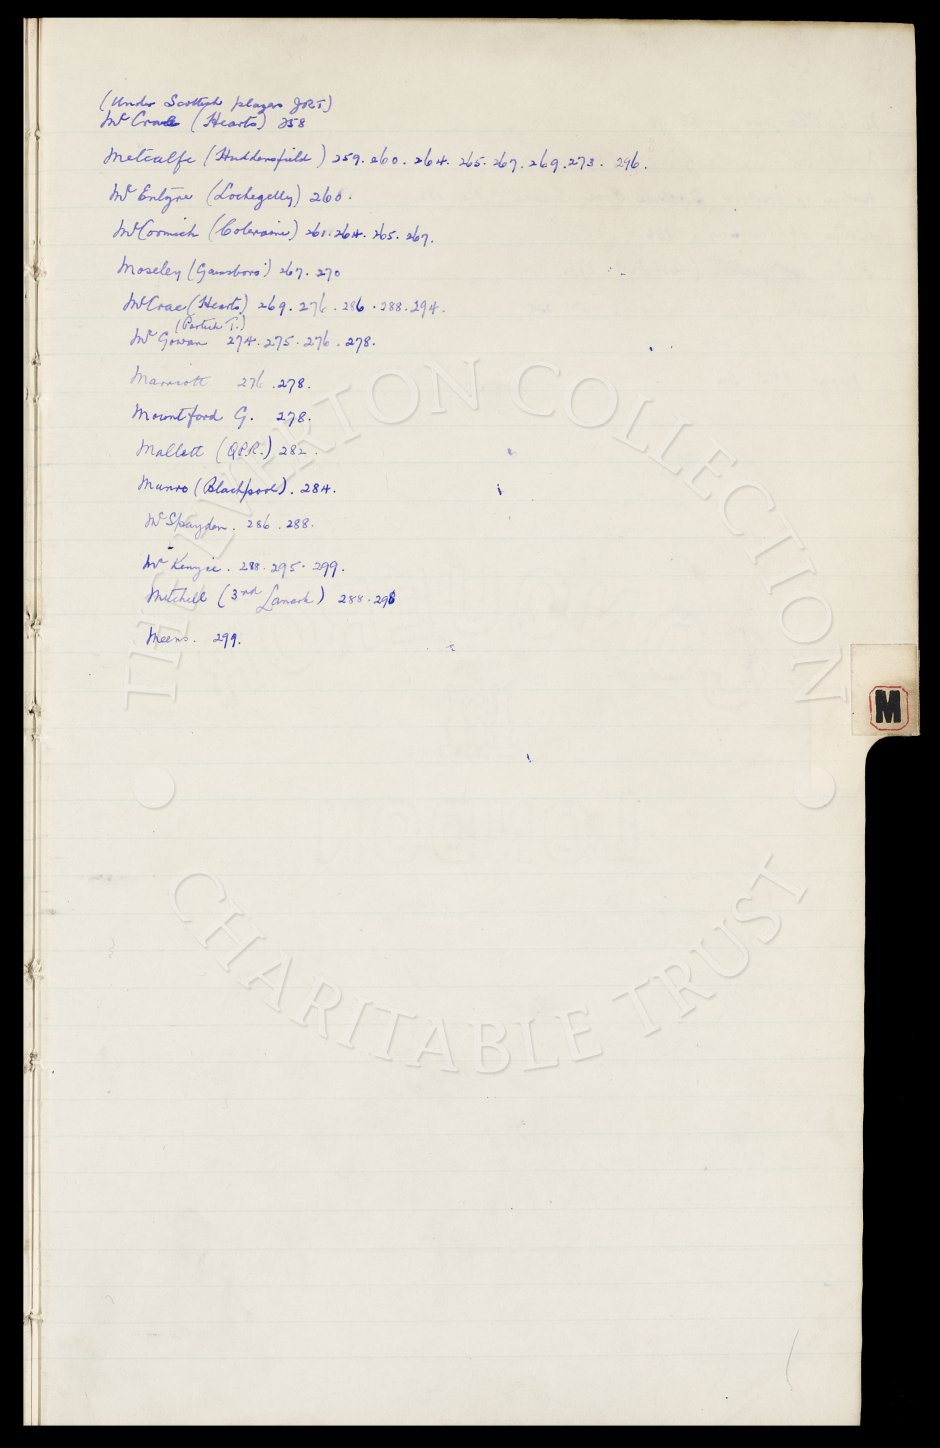 (Under Scottish players J.R.T)
McCrae (Hearts) 258
Metcalfe (Huddersfield) 259. 260. 264. 265. 267. 269. 273. 296.
McEntyre (Lochegelly) 260.
McCormick (Coleraine) 261. 264. 265. 267.
Moseley (Gainsboro') 267. 270
McCrae (Hearts) 269. 276. 286. 288. 294.
(Partick T.)
McGowan 274. 275. 276. 278.
Marriott 276. 278.
Mountford G. 278.
Mallett (Q.P.R.) 282.
Munro (Blackpool). 284.
McSpayden. 286. 288.
McKenzie. 288. 295. 299.
Mitchell (3rd Lanark) 288. 296
Meens. 299.
M
THE EVERTON COLLECTION
CHARITABLE TRUST